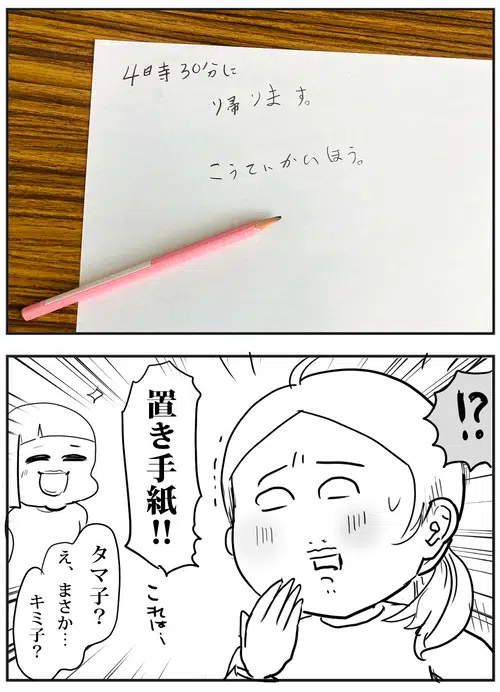 4時30分に
帰ります。
こうていかいほう。
!?
置き手紙!!
これは…
タマ子?
え、まさか…
キミ子?